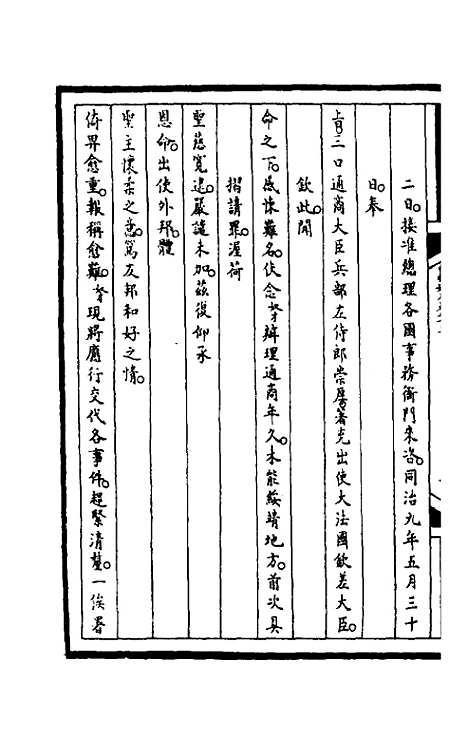 二日。接准總理各國事務衙門來洛。同治九年五月三十
日。奉
上旨三口通商大臣兵部左侍郎崇厚著充出使大法國欽差大臣。
欽此。聞
命之下。感悚難名。伏念奴才辦理通商年久。未能綏靖地方。前次具
摺請罪。渥荷
聖慈寬逮。嚴譴未加。茲復仰承
恩命。出使外邦。體
聖主懷柔之意。篤友邦和好之情。
倚畀愈重。報稱愈難。奴才現將應行交代各事件。趕緊清釐。一俟署